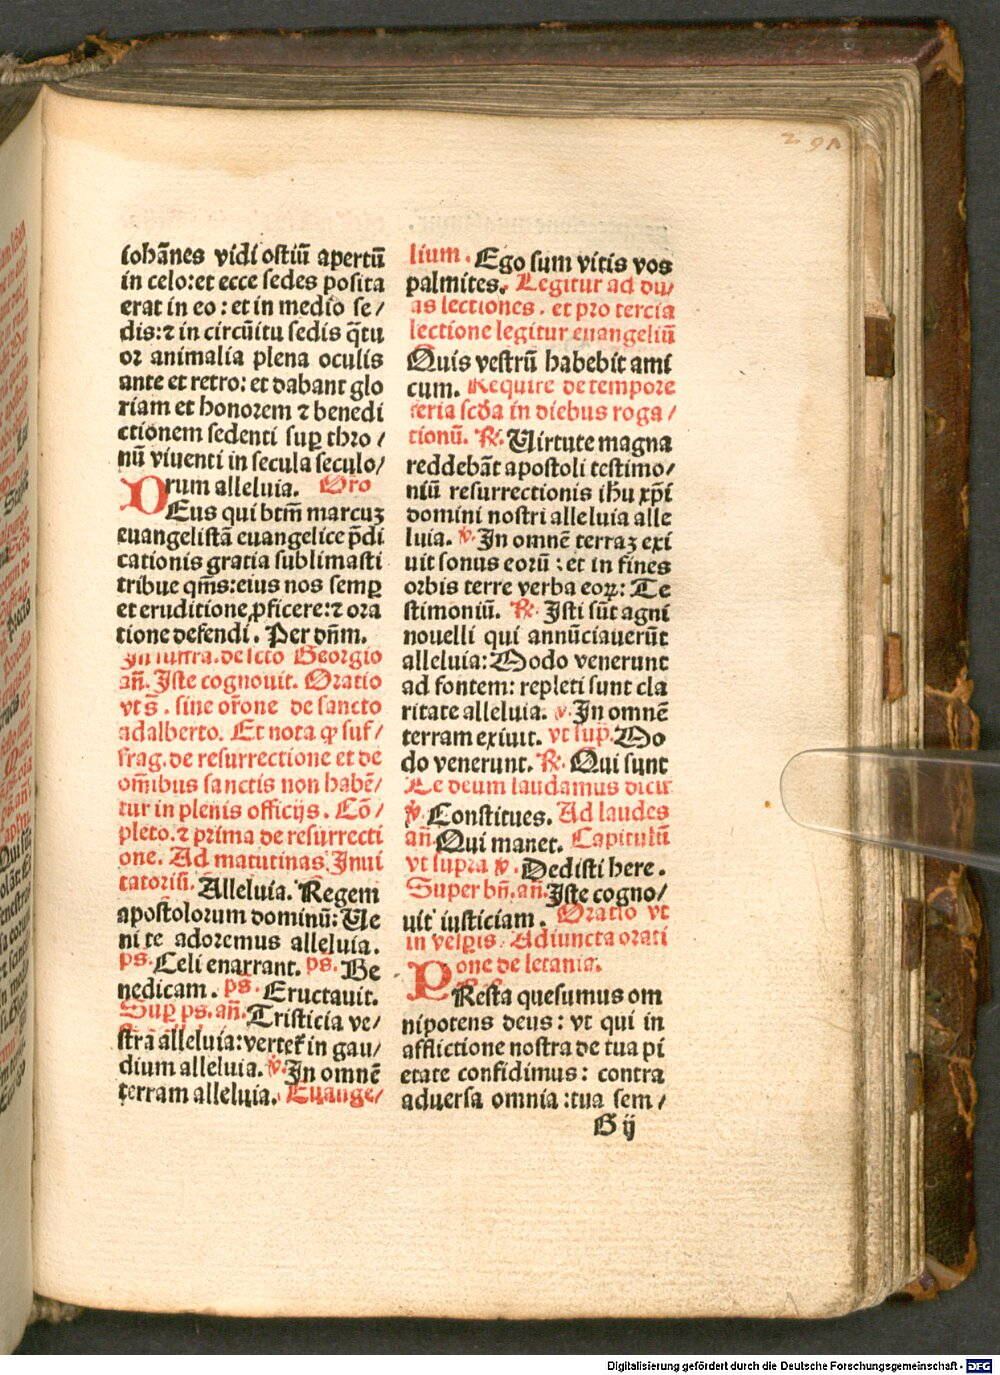 291
iohānes vidi ostiū apertū
in celo: et ecce sedes posita
erat in eo: et in medio se/
dis: ⁊ in circūitu sedis q̄tu
or animalia plena oculis
ante et retro: et dabant glo
riam et honorem ⁊ benedi
ctionem sedenti suꝑ thro/
nū viuenti in secula seculo/
rum alleluia. Oro
DEus qui btm̄ marcuꝫ
euangelistā euangelice p̄di
cationis gratia sublimasti
tribue qm̄s: eius nos semꝑ
et eruditione ꝓficere: ⁊ ora
tione defendi. Per dn̄m.
In suffra. de scto Georgio
an̄. Iste cognouit. Oratio
vt s̄. sine or̄one de sancto
adalberto. Et nota ꝙ suf/
frag. de resurrectione et de
om̄ibus sanctis non habē/
tur in plenis officijs. Cō/
pleto. ⁊ prima de resurrecti
one. Ad matutinas. Inui
tatoriū. Alleluia. Regem
apostolorum dominū: Ue
nite adoremus alleluia.
ps. Celi enarrant. ps. Be
nedicam. ps. Eructauit.
Suꝑ ps. an̄. Tristicia ve/
stra alleluia: vertet̄ in gau/
dium alleluia. ℣. In omnē
terram alleluia. Euange/
lium. Ego sum vitis vos
palmites. Legitur ad du/
as lectiones. et pro tercia
lectione legitur euangeliū
Quis vestrū habebit ami
cum. Require de tempore
feria scd̄a in diebus roga/
tionū. ℟. Uirtute magna
reddebāt apostoli testimo/
niū resurrectionis ih̄u xp̄i
domini nostri alleluia alle
luia. ℣. In omnē terraꝫ exi
uit sonus eorū: et in fines
orbis terre verba eoꝝ: Te
stimoniū. ℟. Isti sūt agni
nouelli qui annūciauerūt
alleluia: Modo venerunt
ad fontem: repleti sunt cla
ritate alleluia. ℣. In omnē
terram exiuit. vt sup̄. Mo
do venerunt. ℟. Qui sunt
Te deum laudamus dicit̄
℣. Constitues. Ad laudes
an̄. Qui manet. Capitulū
vt supra ℣. Dedisti here.
Super bn̄. an̄. Iste cogno/
uit iusticiam. Oratio vt
in vesꝑis. Adiuncta orati
one de letania.
PResta quesumus om
nipotens deus: vt qui in
afflictione nostra de tua pi
etate confidimus: contra
aduersa omnia: tua sem/
B ij
Digitalisierung gefördert durch die Deutsche Forschungsgemeinschaft - DFG